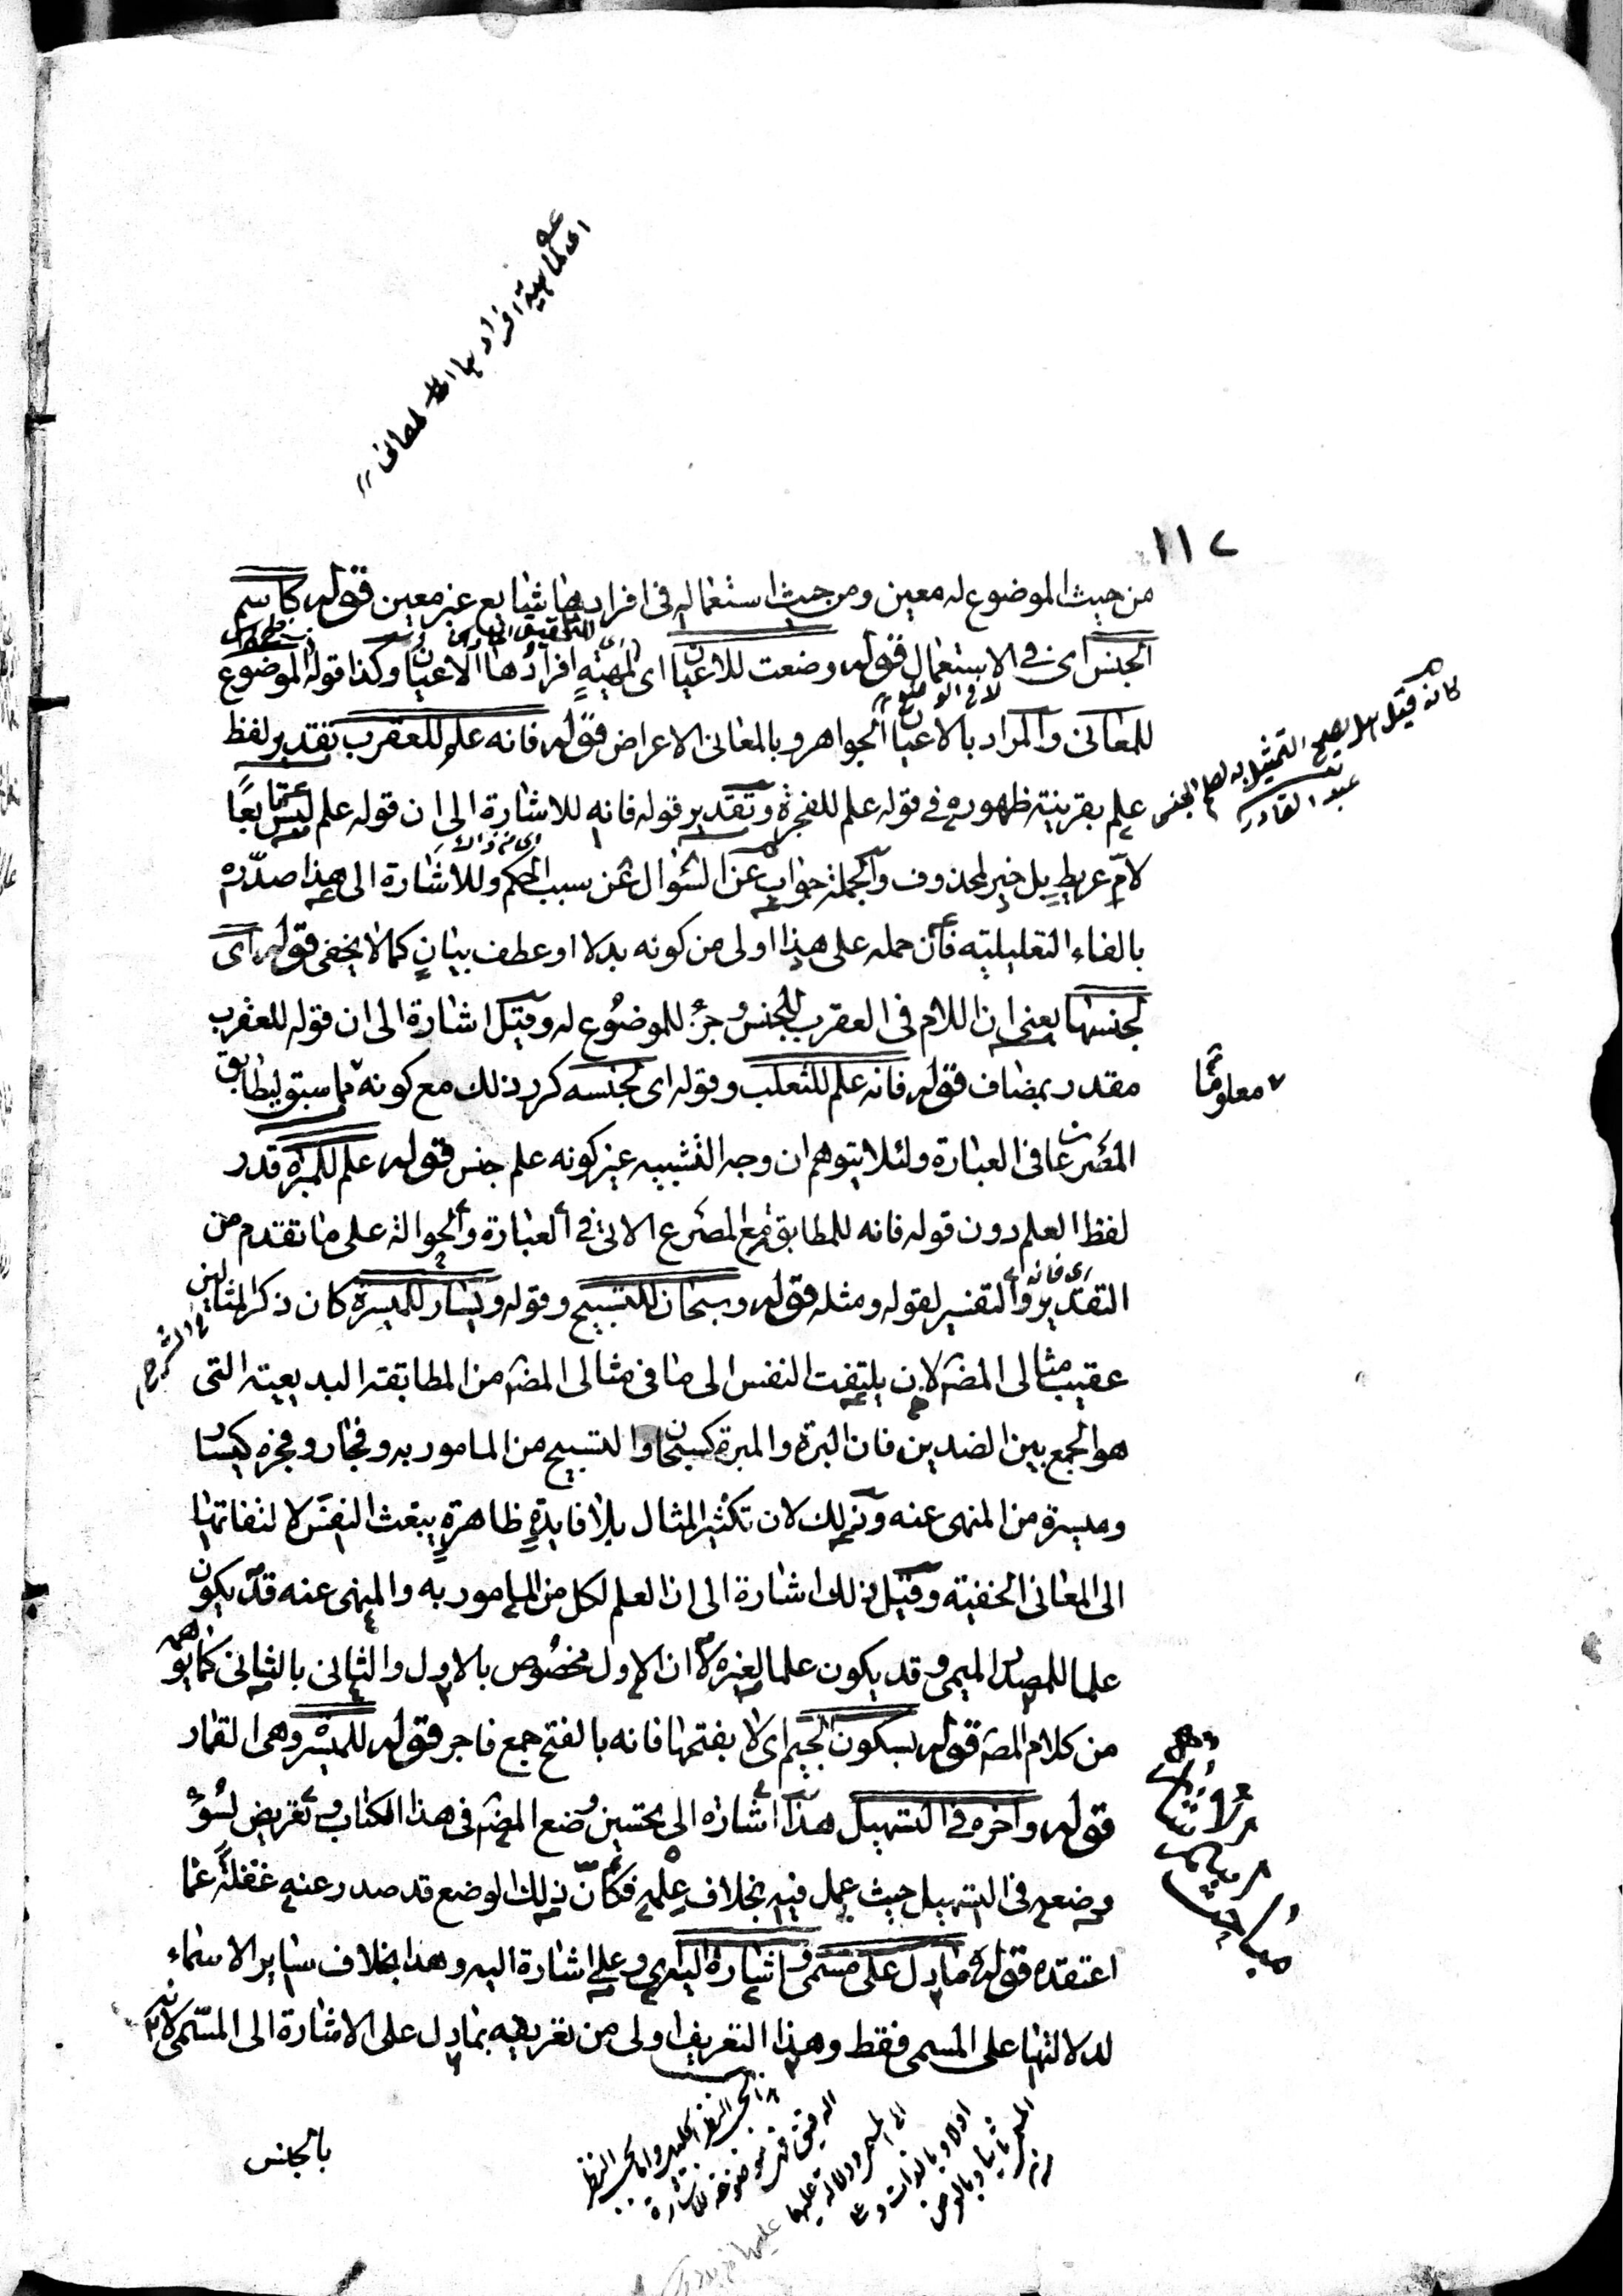 ١١٢
من حيث الموضوع له معين ومن حيث استعماله فى افرادها شايع غير معين قوله كاسم
الجنس اى فى الاستعمال قوله وضعت للاعيان اى لمهية افرادها الاعيان وكذا قوله الموضوع
للمعانى والمراد بالاعيان الجواهر وبالمعانى الاعراض قوله فانه علم للعقرب تقدير لفظ
علم بقرينة ظهوره فى قوله علم للفجرة وتقدير قوله فانه للاشارة الى ان قوله علم ليس تابعًا
لام عريط بل خبر لمحذوف والجملة جواب عن السؤال عن سبب الحكم وللاشارة الى هذا صدّره
بالفاء التعليلية فان حمله على هذا اولى من كونه بدلا او عطف بيان كما لا يخفى قوله اى
لجنسها يعنى ان اللام فى العقرب للجنس وجزء للموضوع له وقيل اشارة الى ان قوله للعقرب
مقدر بمضاف قوله فانه علم للثعلب وقوله اى لجنسه كرر ذلك مع كونه مما سبق ليطابق
معلومًا
المصرعان فى العبارة ولئلا يتوهم ان وجه التشبيه غير كونه علم جنس قوله علم للمبرة قدر
لفظ العلم دون قوله فانه للمطابقة مع المصرع الاتى فى العبارة والحوالة على ما تقدم من
التقدير والتفسير لقوله ومثله قوله وسبحان للتسبيح وقوله ويسار للميسرة كان ذكر المثالين
فى الشرح
عقيب مثالى المصه لان يلتفت النفس الى ما فى مثالى المصه من المطابقة البديعية التى
هو الجمع بين الضدين فان البرة والمبرة كسبحان والتسبيح من المامور به وفجار وفجره كيسار
وميسرة من المنهى عنه وذلك لان تكثير المثال بلا فايدة ظاهرة يبعث النفس لالتفاتها
الى المعانى الخفية وقيل ذلك اشارة الى ان العلم لكل من المامور به والمنهى عنه قد يكون
علما للمصدر الميمى وقد يكون علما لغيره لا ان الاول مخصوص بالاول والثانى بالثانى كما يوهم
من كلام المصه قوله بسكون الجيم اى لا بفتحها فانه بالفتح جمع فاجر قوله للميسر وهى القمار
قوله واخره فى التسهيل هذا اشاره الى تحسين وضع المصه فى هذا الكتاب وتعريض لسوء
وضعه فى التسهيل حيث عمل فيه بخلاف علمه فكانّ ذلك الوضع قد صدر عنه غفلةً عما
اعتقده قوله ما دل على مسمى واشارة اليه اى وعلى اشارة اليه وهذا بخلاف ساير الاسماء
لدلالتها على المسمى فقط وهذا التعريف اولى من تعريفه بما دل على الاشارة الى المسمى لانه
بالجانس